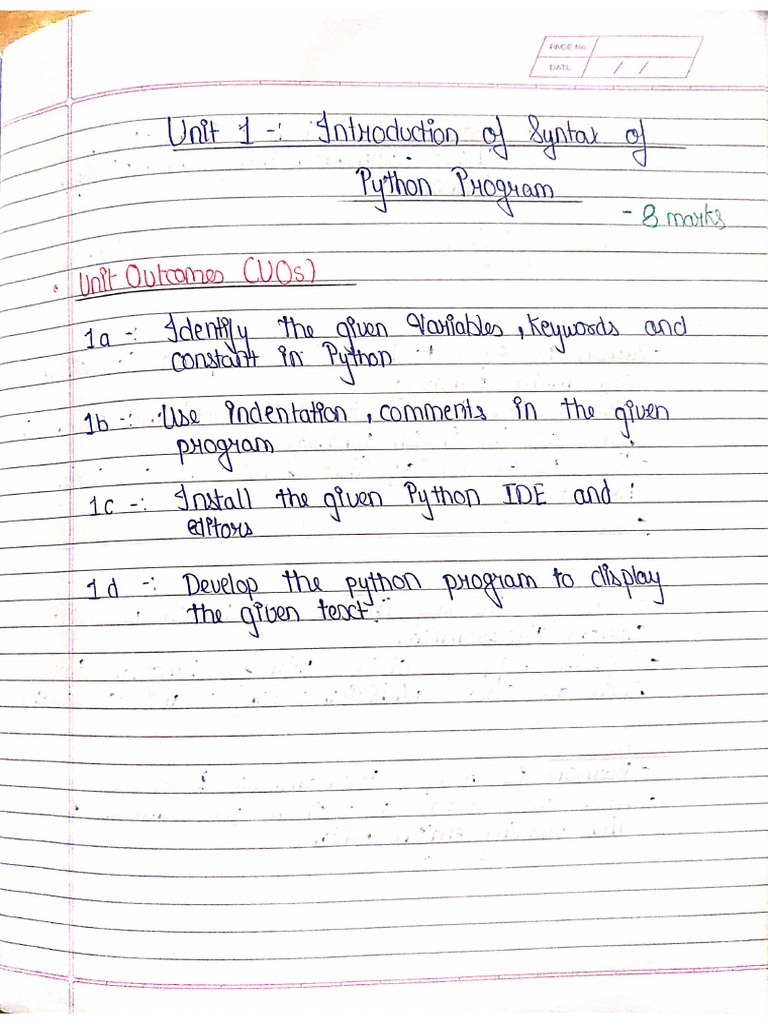 PAGE No.
DATE / /
Unit 1 -: Introduction of Syntax of
Python Program
- 8 marks
• Unit Outcomes (UOs)
1a -: Identify the given Variables, Keywords and
constant in Python
1b -: Use indentation, comments in the given
program
1c -: Install the given Python IDE and
editors
1d -: Develop the python program to display
the given text.